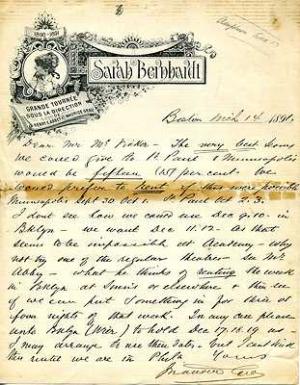 1890-1891
Sarah Bernhardt
GRANDE TOURNÉE
SOUS LA DIRECTION
DE
HENRY E. ABBEY & MAURICE GRAU
Boston Mch 14 1891
Dear Mr Mc Vicker - The very best terms
we could give to St Paul & Minneapolis
would be fifteen (15) per cent. We
would prefer to Rent if this were possible
Minneapolis Sept 30 Oct 1. St Paul Oct 2. 3.
I dont see how we could use Dec 9. 10. in
Bklyn - we want Dec 11. 12. As that
seems to be impossible at Academy - why
not try one of the regular theatres - see Mr
Abby - what he thinks of renting the week
in Bklyn at Sinns or elsewhere & then see
if we can put something in for three or
four nights of that week. In any case please
write Bklyn to hold Dec 17. 18. 19 as
I may arrange to use them dates. But I cant
this until we are in Phila
Yours
Maurice Grau